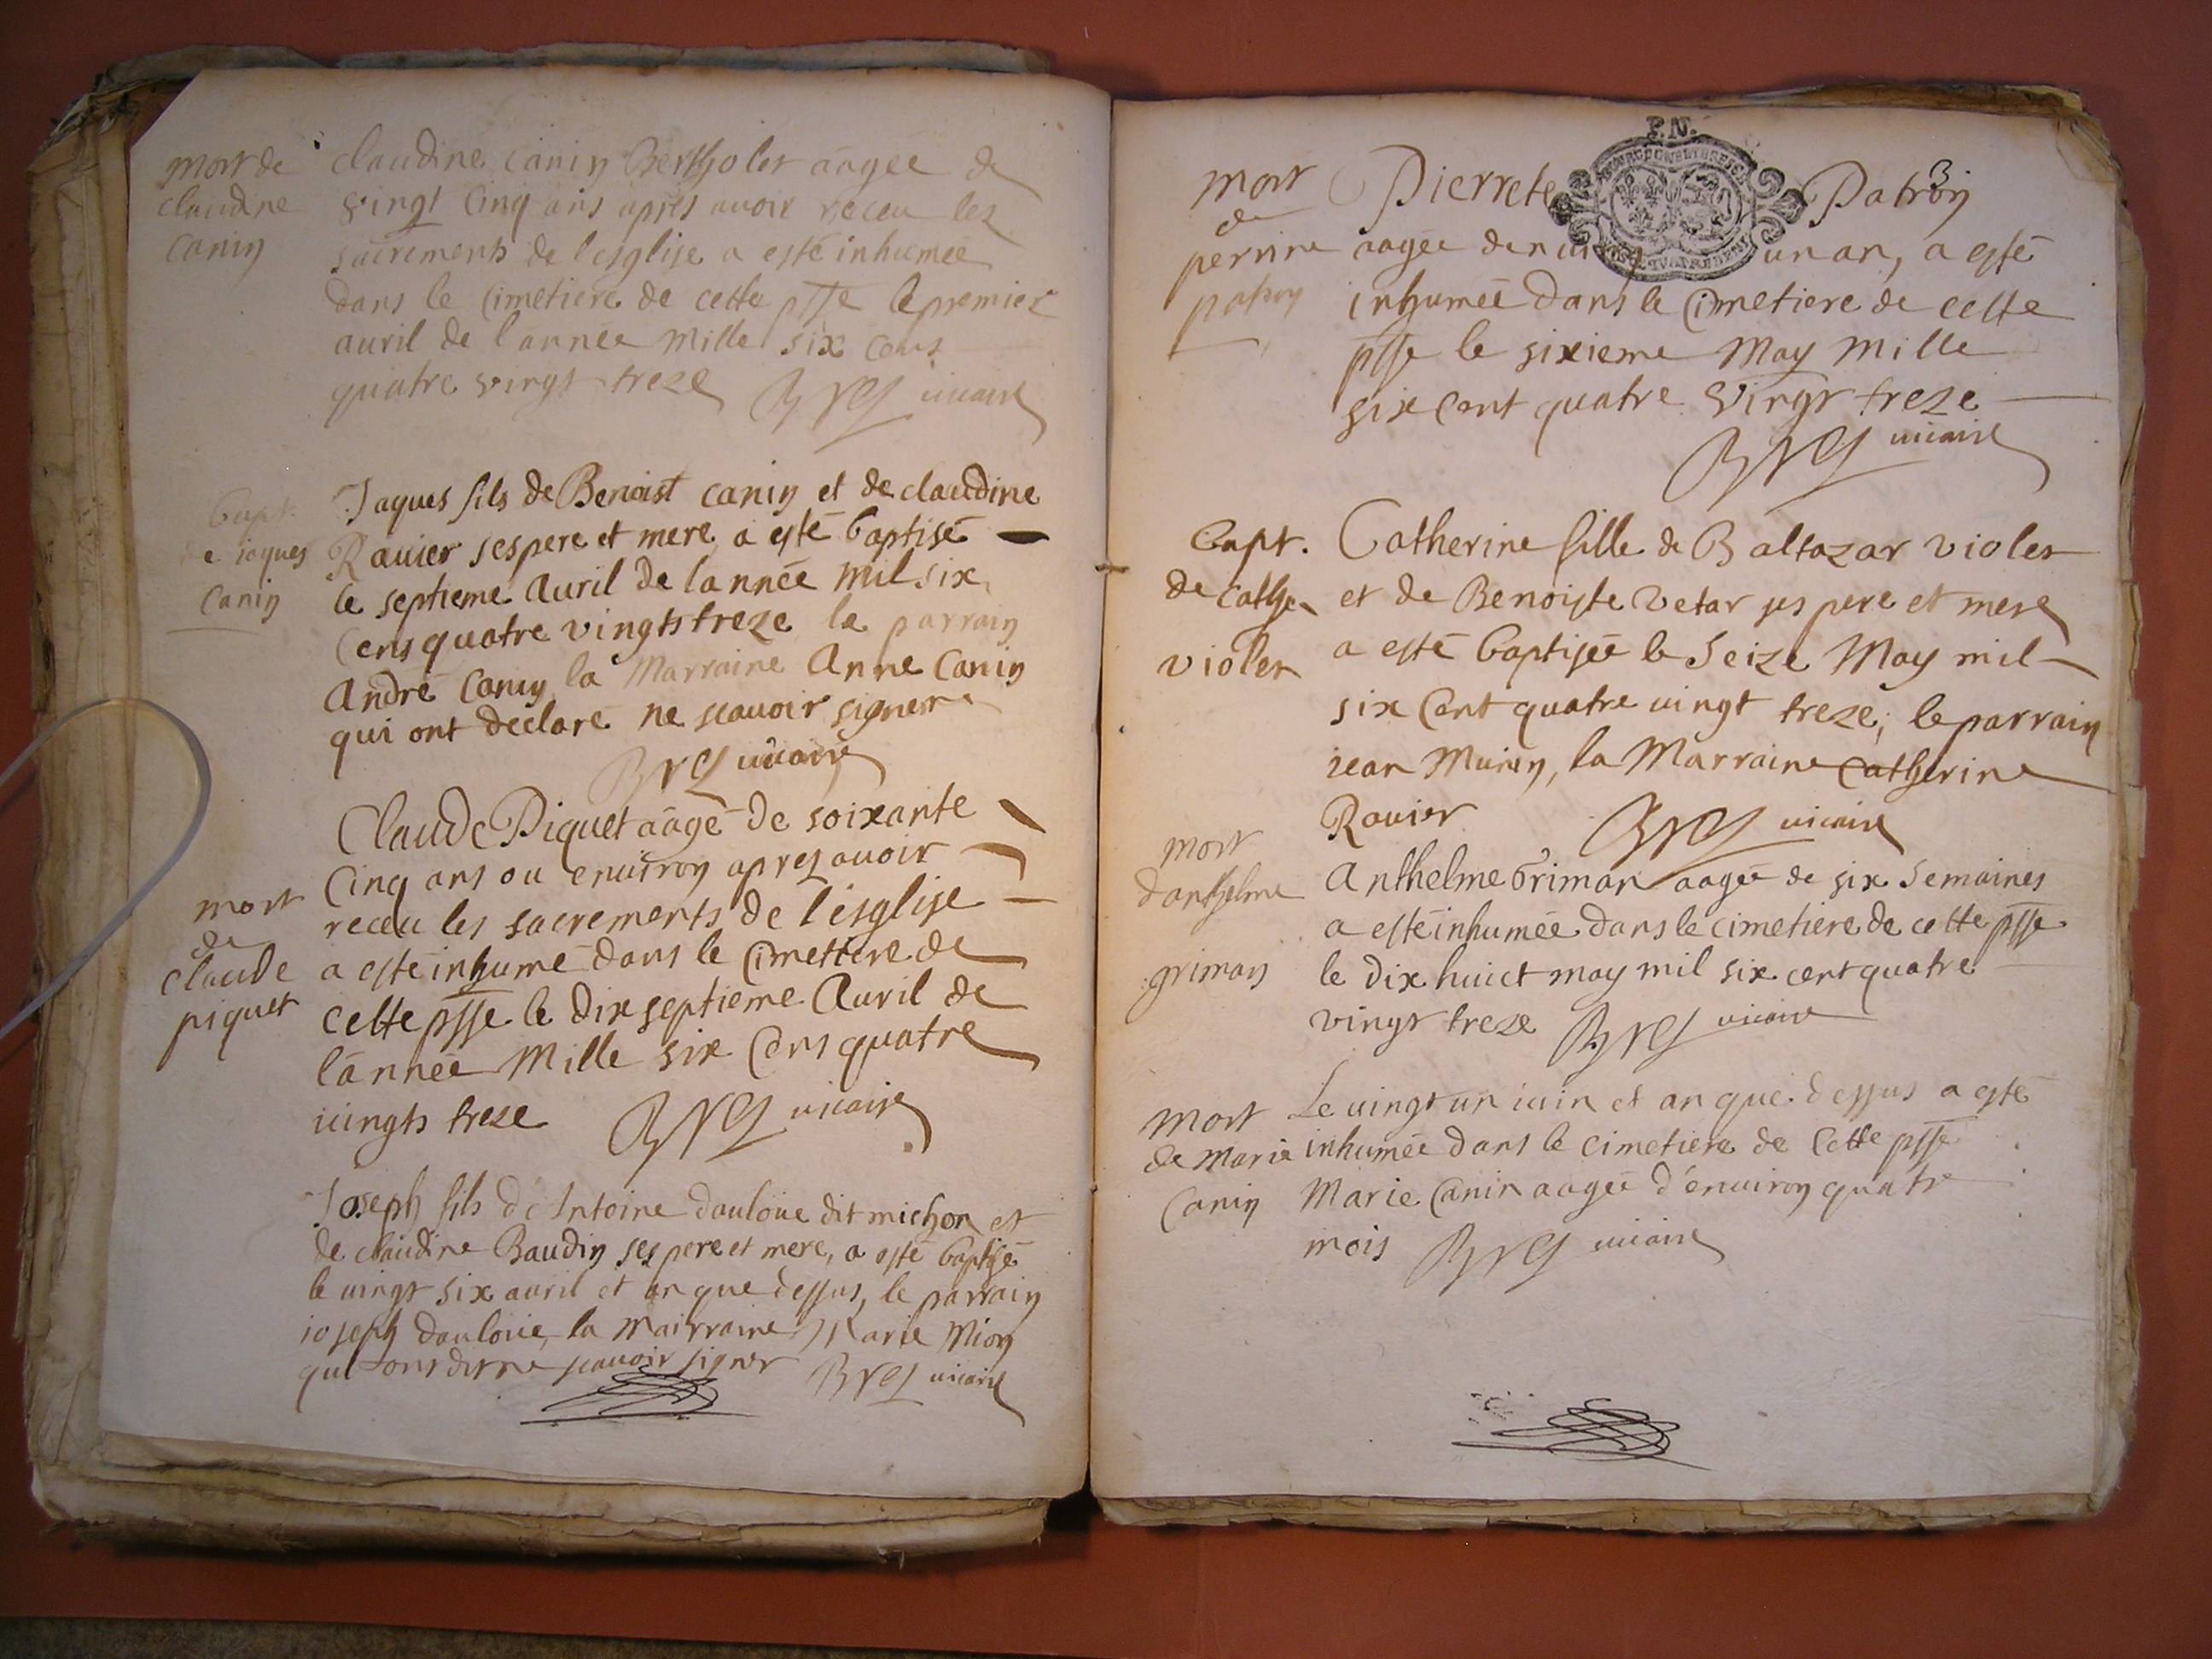 mort de
claudine
canin
claudine canin Bertholet aagee de
vingt cinq ans apres avoir receu les
sacrements de l'esglise a esté inhumée
dans le cimetiere de cette psse le premier
auril de l'année mille six cens
quatre vingt treze Bres uicaire
bapt.
de iaques
canin
Jaques fils de Benoist canin et de claudine
Rauier ses pere et mere a esté baptisé
le septieme auril de lannée mil six
cens quatre vingts treze le parrain
André Canin la Marraine Anne Canin
qui ont declaré ne scauoir signer
Bres uicaire
mort
de
claude
piquet
Claude Piquet aagé de soixante
cinq ans ou enuiron apres auoir
receu les sacrements de l'esglise
a esté inhumé dans le cimettere de
cette psse le dix septieme Auril de
l'année Mille six cens quatre
uingts treze Bres uicaire
Joseph fils de Antoine douloüe dit michon et
de claudine Baudin ses pere et mere, a esté baptisé
le uingt six auril et an que dessus, le parrain
ioseph douloüe, la mairraine Marie Mion
qui ont dit ne scauoir signer Bres uicaire
P.N.
3
mort
de
perrine
patron
Pierrete Patron
aagée denui un an, a esté
inhumée dans le cimetiere de cette
psse le sixieme May Mille
six cent quatre vingt treze
Bres uicaire
Bapt.
de cathe
violet
Catherine fille de Baltazar violet
et de Benoiste Vetar ses pere et mere
a esté baptisée le Seize May mil
six cent quatre uingt treze, le parrain
iean Munin, la Marraine Catherine
Rauier Bres uicaire
mort
danthelme
griman
Anthelme Griman aagée de six Semaines
a esté inhumée dans le cimetiere de cette psse
le dix huict may mil six cent quatre
vingt treze Bres uicaire
mort
de Marie
Canin
Le uingt un iuin et an que dessus a esté
inhumée dans le cimetiere de Cette psse
Marie Canin aagée d'enuiron quatre
mois Bres uicaire